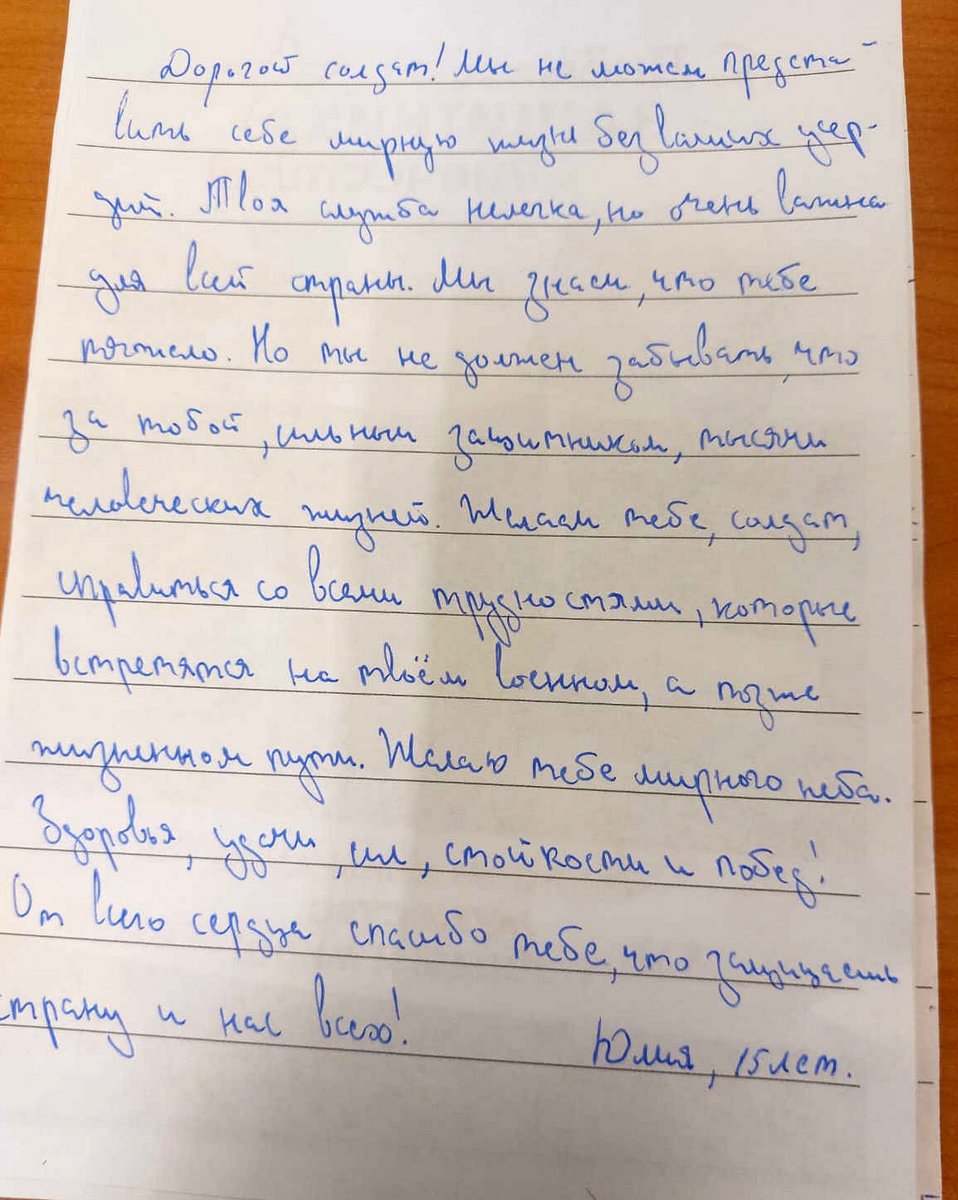 Дорогой солдат! Мы не можем предста-
вить себе мирную жизнь без ваших усер-
дий. Твоя служба нелегка, но очень важна
для всей страны. Мы знаем, что тебе
тяжело. Но ты не должен забывать, что
за тобой, сильным защитником, тысячи
человеческих жизней. Желаем тебе, солдат,
справиться со всеми трудностями, которые
встретятся на твоём военном, а позже
жизненном пути. Желаю тебе мирного неба.
Здоровья, удачи, сил, стойкости и побед!
От всего сердца спасибо тебе, что защищаешь
страну и нас всех!
Юлия, 15 лет.